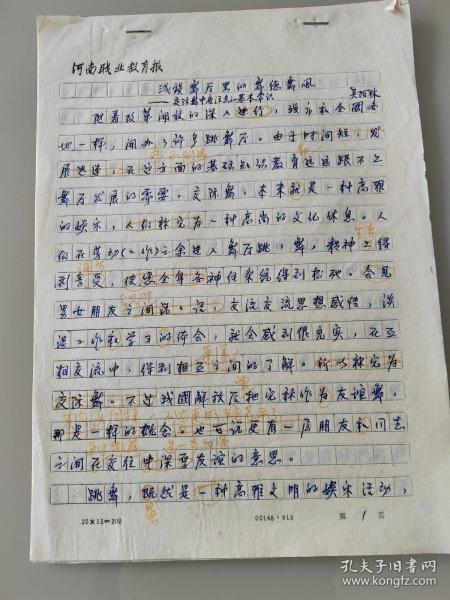 河南职业教育报
浅谈舞厅里的舞德舞风
——交际舞中应注意的基本常识
随着改革开放的深入进行，我市和全国各
地一样，开办了许多跳舞厅。由于时间短，发
展迅速，在这方面的基础知识教育远远跟不上
舞厅发展的需要。交际舞，本来就是一种高雅
的娱乐，人们称它为一种高尚的文化休息。人
们在劳动(工作)之余进入舞厅跳跳舞，精神上得
到享受，使您全身各神经系统得到松弛。会见
男女朋友之间谈谈，交流交流思想感情，谈
谈工作和学习的体会，就会感到很充实，在互
相交流中，得到相互之间的了解。所以称它为
交际舞。不过我国解放后把它称作为友谊舞，
那是一样的概念。也可说更有一层朋友和同志
之间在交往中深厚友谊的意思。
跳舞，既然是一种高雅文明的娱乐活动，
20×15=300
00148·913
第 1 页
孔夫子旧书网
www.kongfz.com